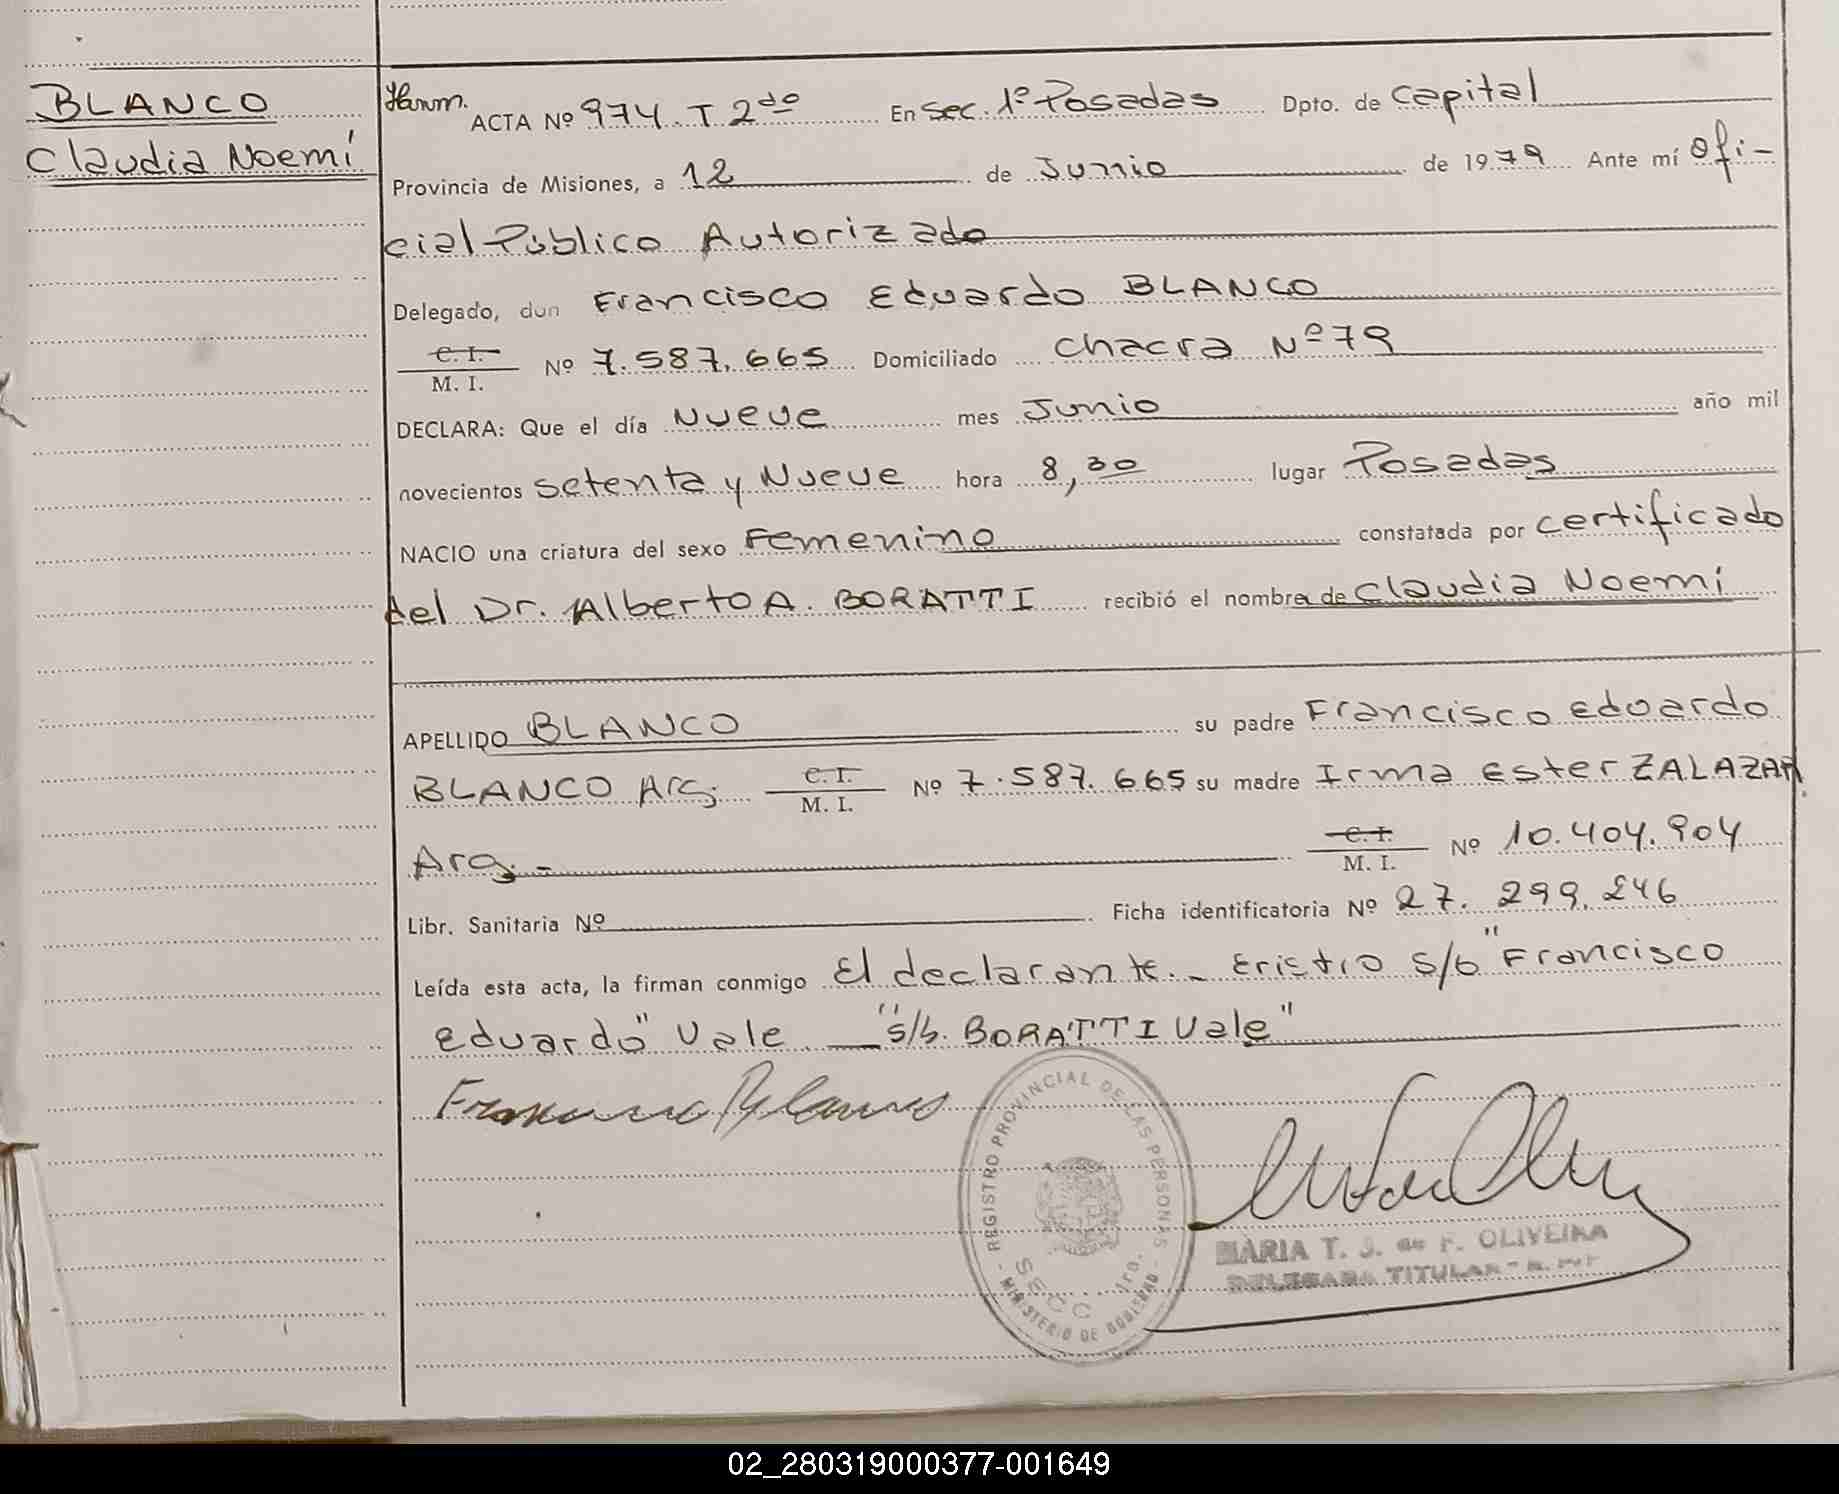 BLANCO
Claudia Noemí
ACTA Nº 974. T 2do En Sec. 1º Posadas Dpto. de Capital
Provincia de Misiones, a 12 de Junio de 1979 Ante mí Ofi-
cial Público Autorizado
Delegado, don Francisco Eduardo BLANCO
C. I.
M. I. Nº 7.587.665 Domiciliado Chacra Nº 79
DECLARA: Que el día Nueve mes Junio año mil
novecientos setenta y Nueve hora 8,30 lugar Posadas
NACIO una criatura del sexo Femenino constatada por certificado
del Dr. Alberto A. BORATTI recibió el nombre de Claudia Noemí
APELLIDO BLANCO su padre Francisco Eduardo
BLANCO Arg. C. I.
M. I. Nº 7.587.665 su madre Irma Ester ZALAZAR
Arg.- C. I.
M. I. Nº 10.404.904
Libr. Sanitaria Nº Ficha identificatoria Nº 27.299.246
Leída esta acta, la firman conmigo El declarante.- s/b "Francisco
Eduardo" Vale "s/b. BORATTI Vale"
Francisco Blanco
REGISTRO PROVINCIAL DE LAS PERSONAS
SECC. 1ra.
MINISTERIO DE GOBIERNO
MARIA T. J. de F. OLIVEIRA
DELEGADA TITULAR
02_280319000377-001649